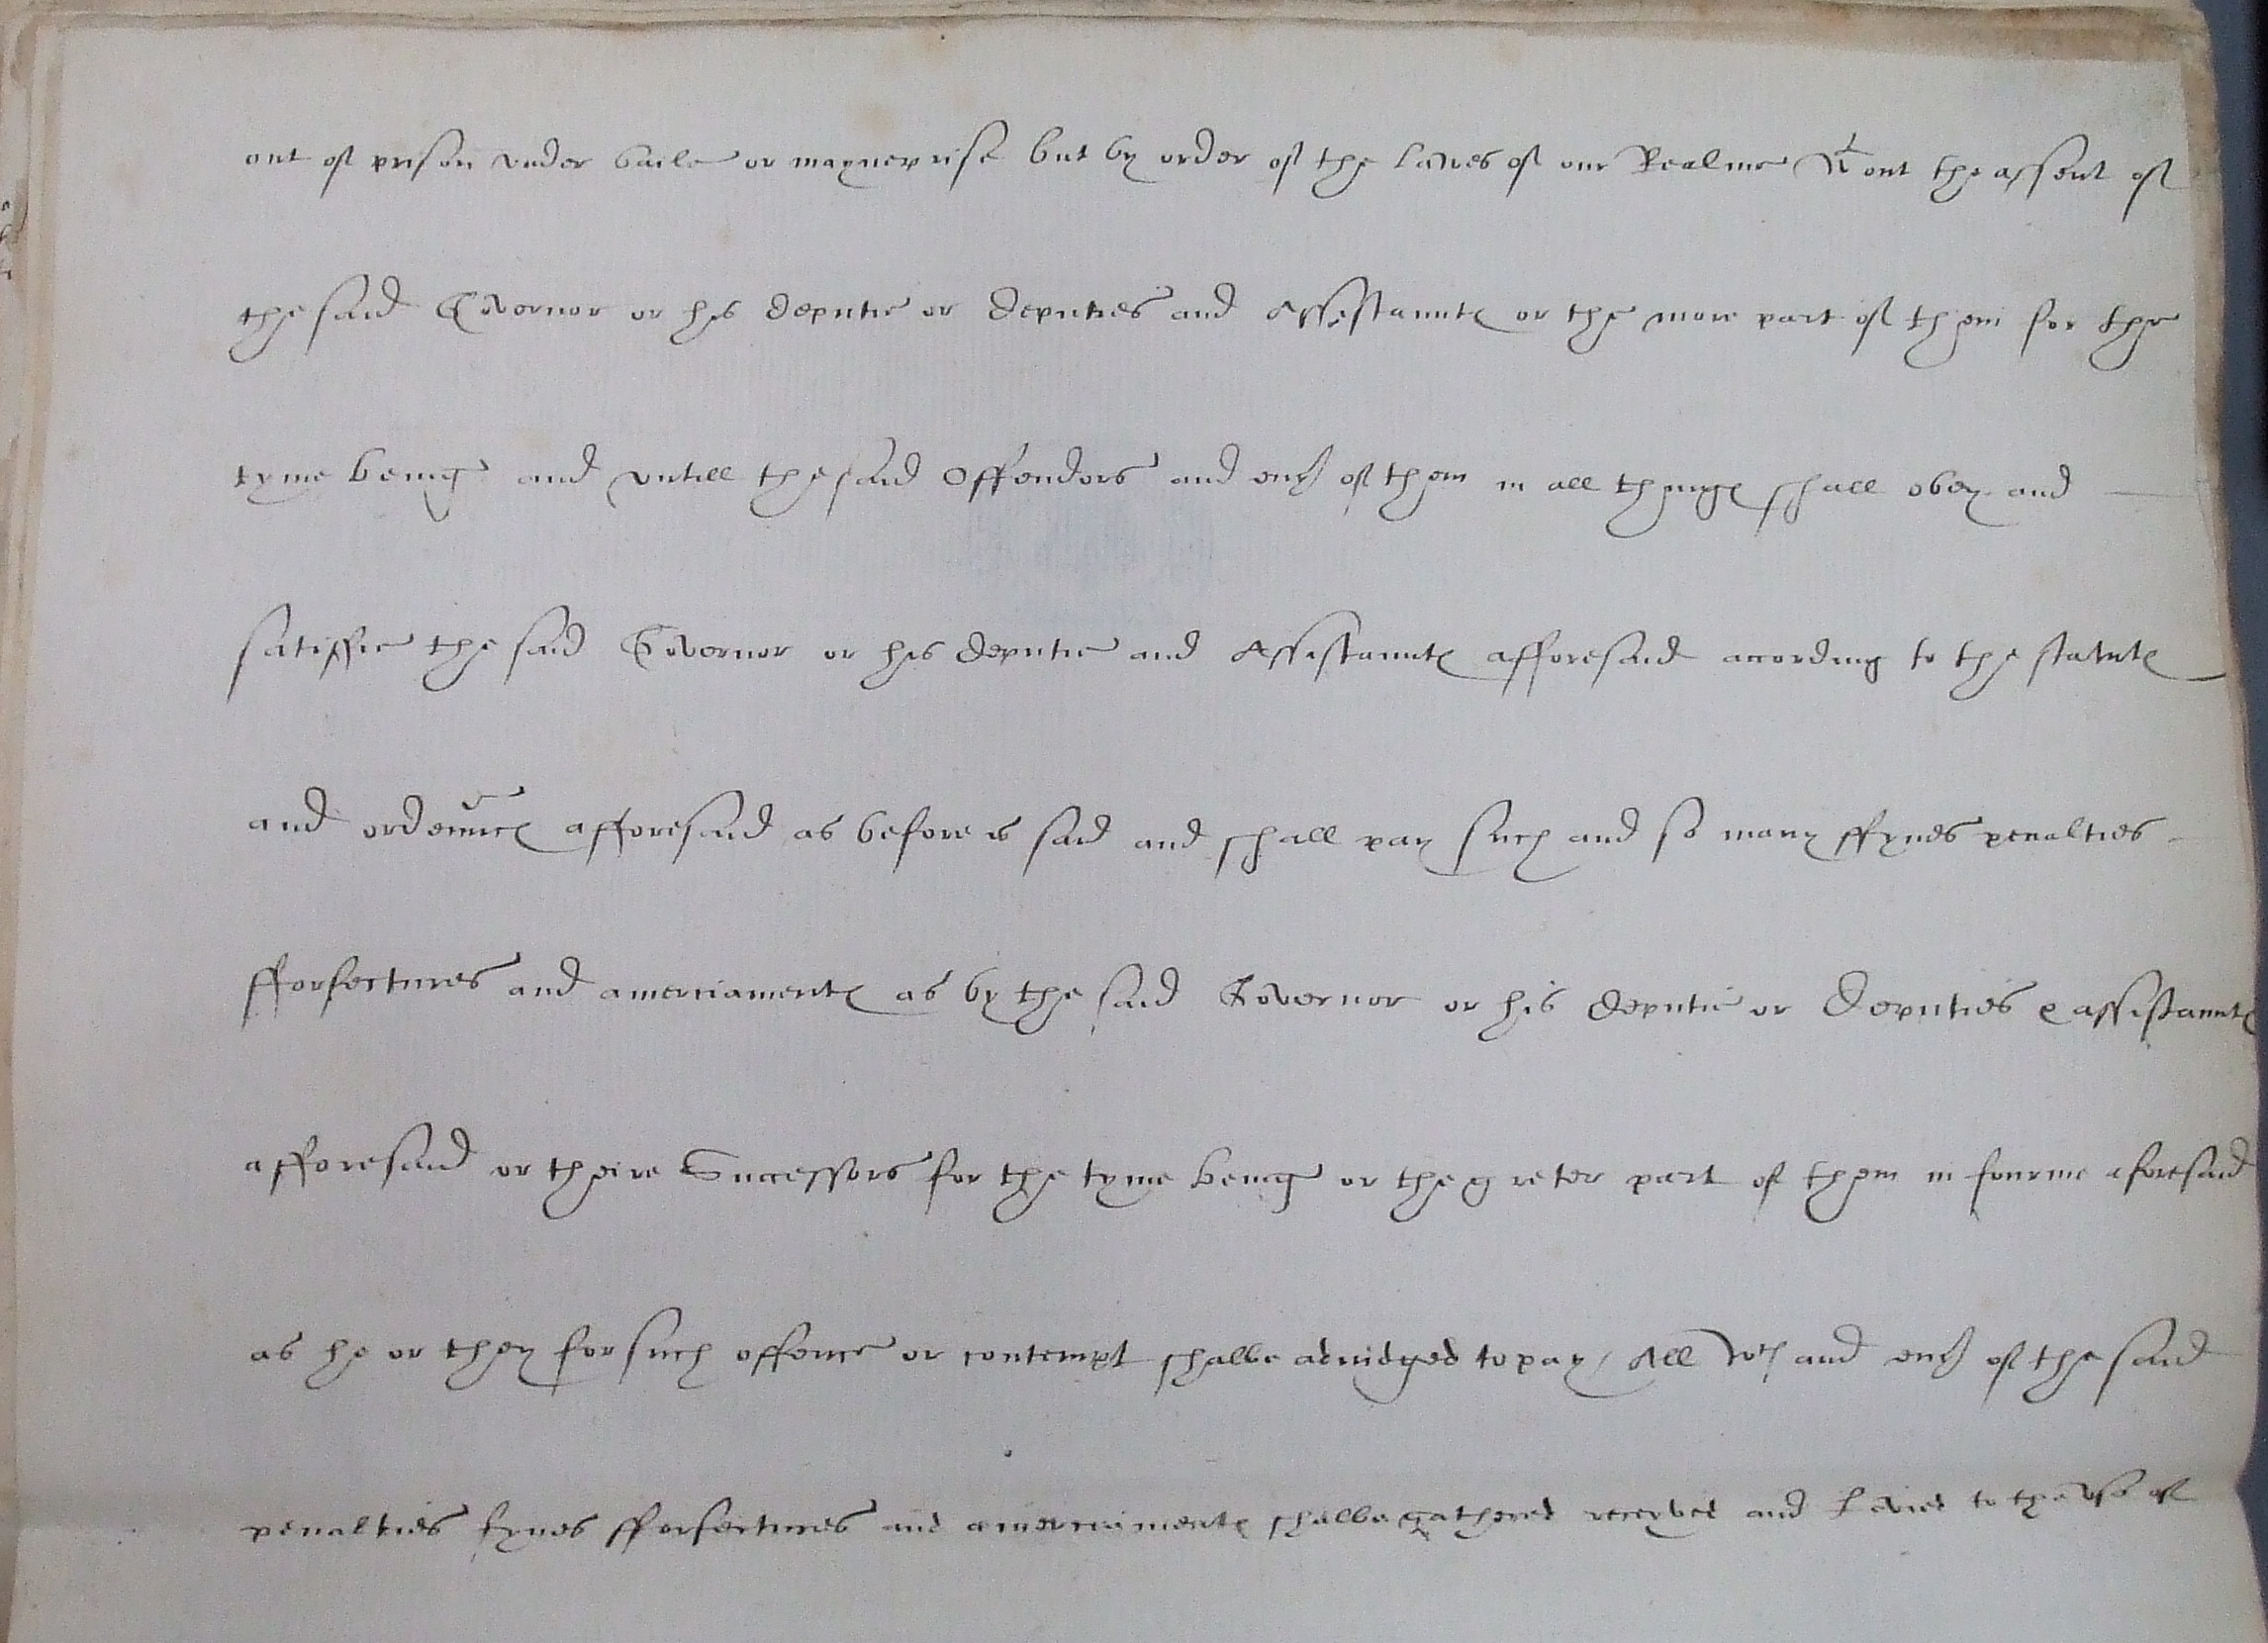 out of prison vnder baile or mayneprise but by order of the Lawes of our Realme wt out the assent of
the said Governor or his deputie or deputies and Assistauntes or the more part of them for the
tyme being and vntill the said Offendors and euy of them in all thinges shall obey and
satisfie the said Governor or his deputie and Assistauntes afforesaid according to the statutes
and ordennces afforesaid as before is said and shall pay such and so many ffynes penalties
fforfectures and amerciamentes as by the said Governor or his deputie or deputies & assistauntes
afforesaid or theire Successors for the tyme being or the greter part of them in fourme aforesaid
as he or they for such offence or contempt shalbe adiudged to pay / All wch and euy of the said
penalties fynes fforfectures and amerciamentes shalbe gathered receyved and Levied to the vse of